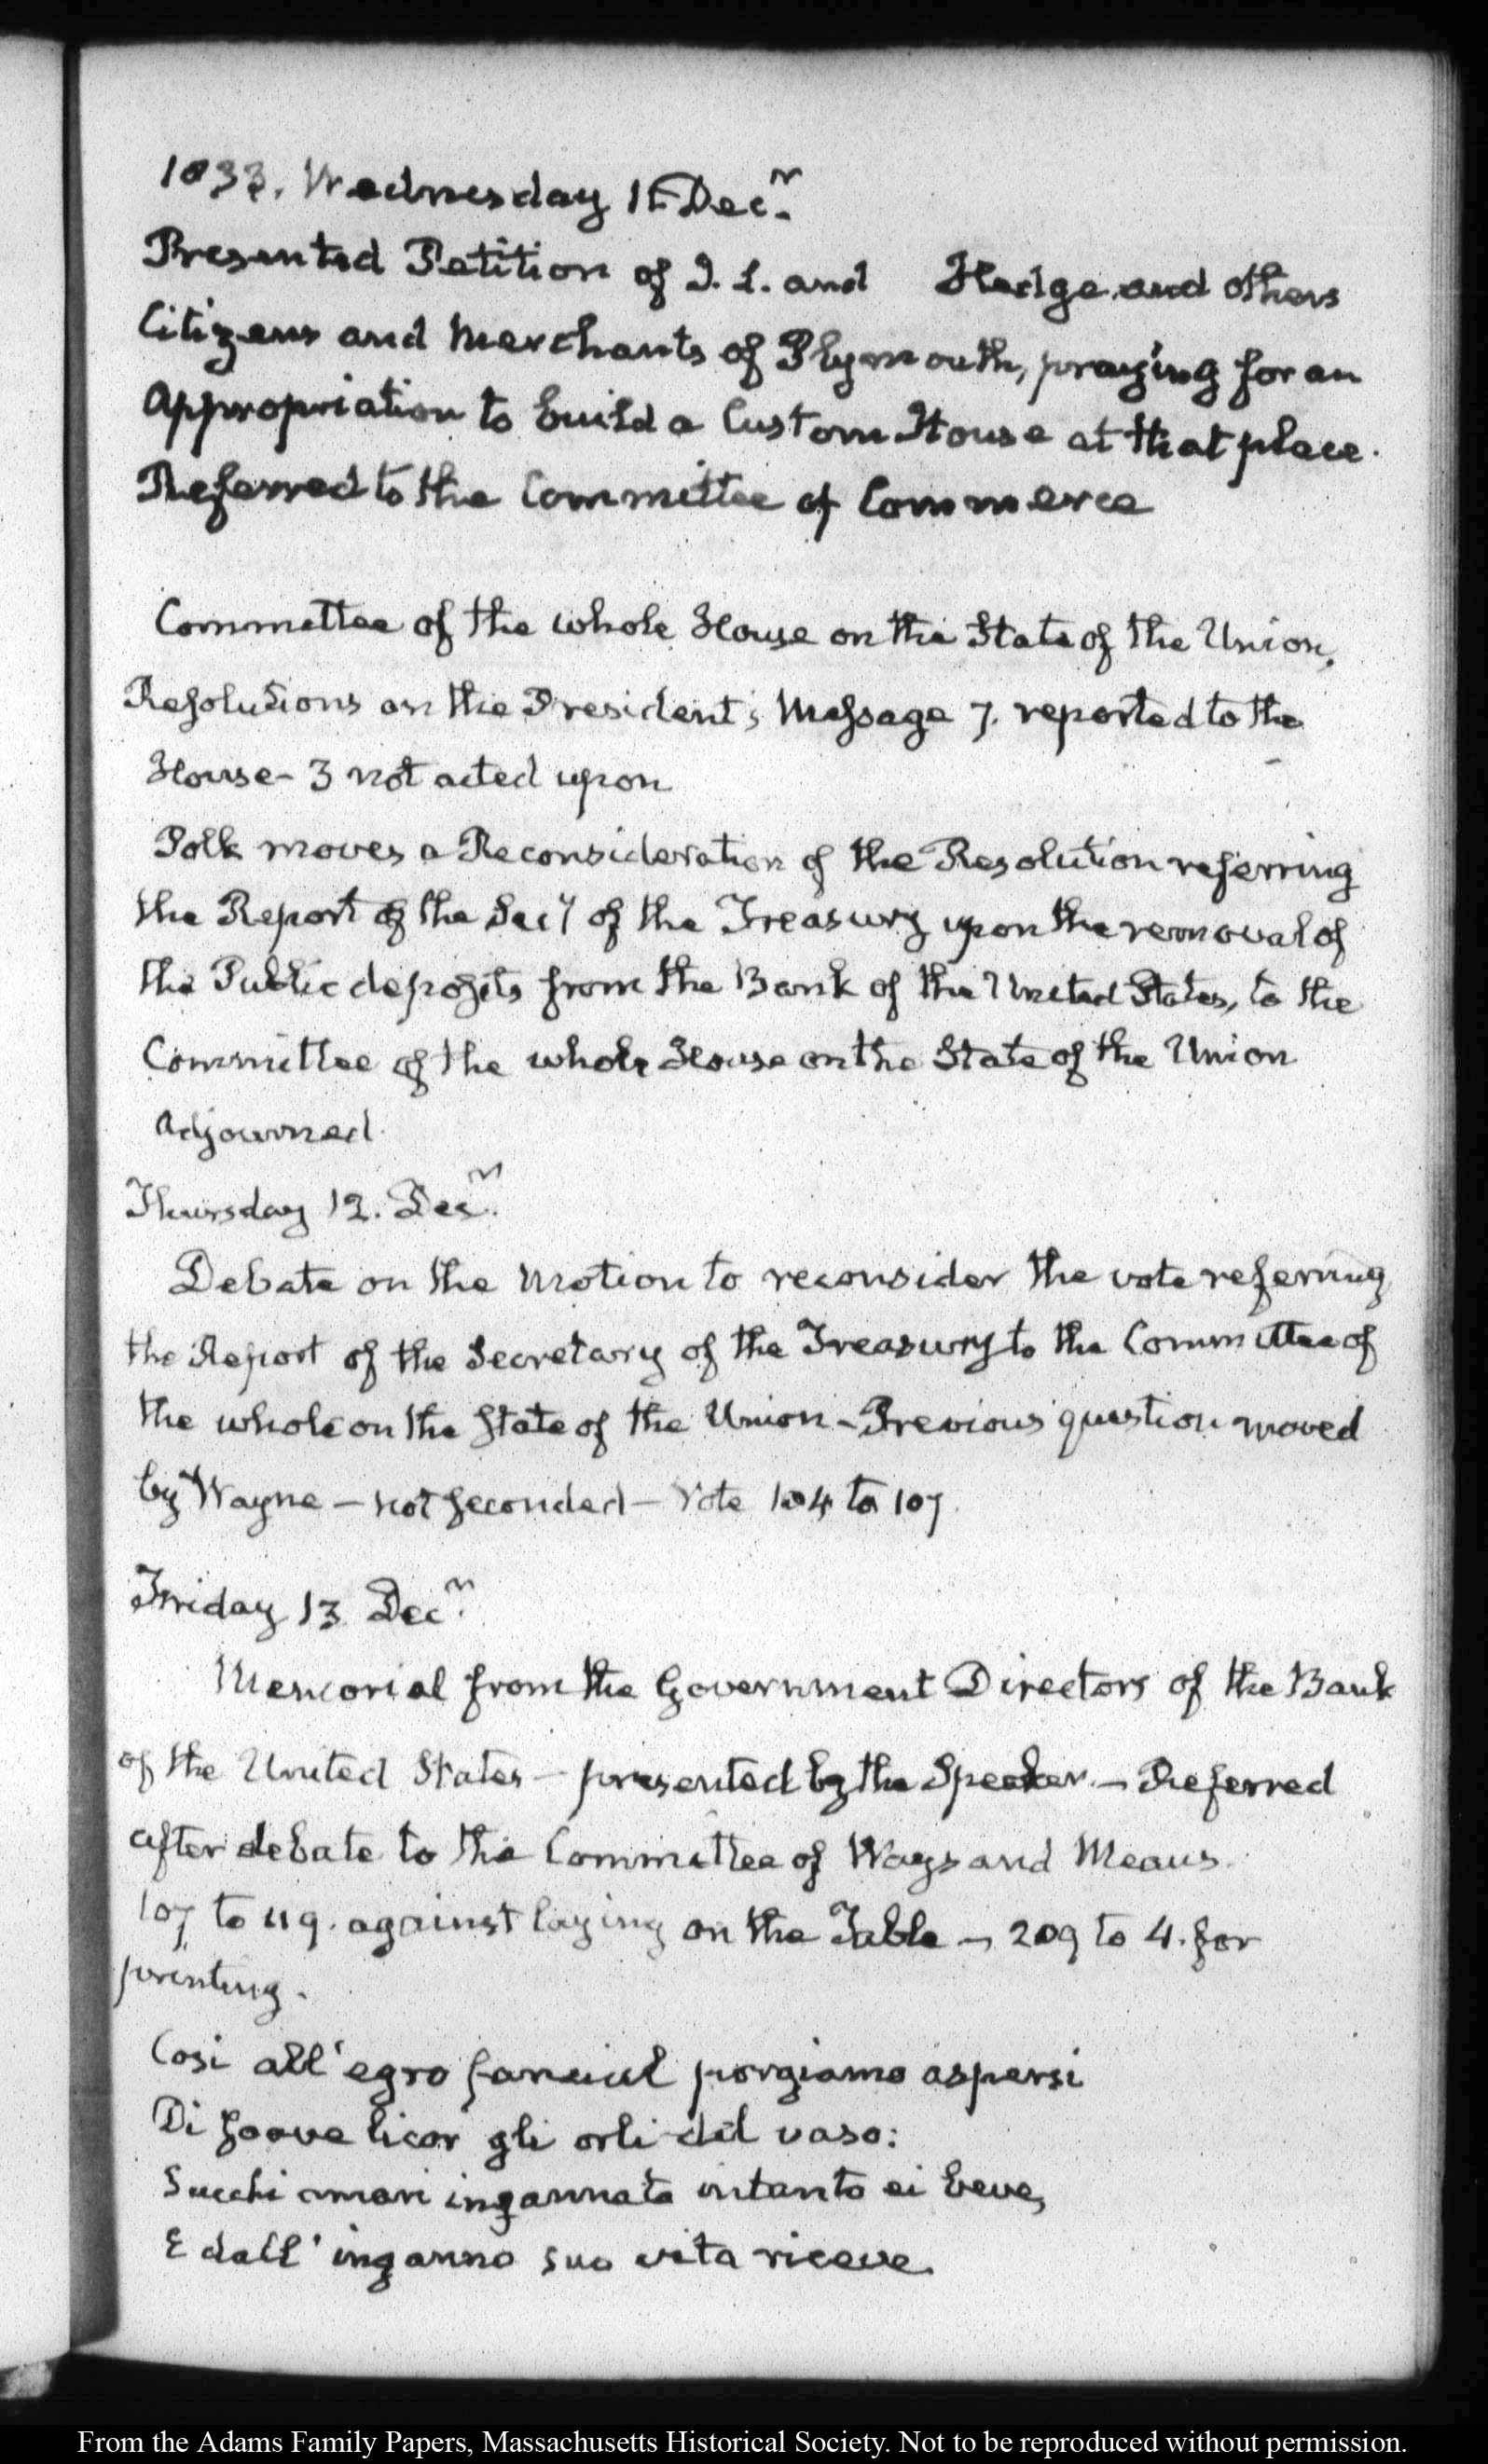 1833. Wednesday 11 Decr.
Presented Petition of I. L. and Hedge and others
Citizens and Merchants of Plymouth, praying for an
Appropriation to build a Custom House at that place.
Referred to the Committee of Commerce
Committee of the whole House on the State of the Union.
Resolutions on the President's Message 7. reported to the
House - 3 not acted upon
Polk moves a Reconsideration of the Resolution referring
the Report of the Secy of the Treasury upon the removal of
the Public deposits from the Bank of the United States, to the
Committee of the whole House on the State of the Union
Adjourned.
Thursday 12. Decr.
Debate on the Motion to reconsider the vote referring
the Report of the Secretary of the Treasury to the Committee of
the whole on the State of the Union - Previous question moved
by Wayne - not seconded - Vote 104 to 107.
Friday 13 Decr.
Memorial from the Government Directors of the Bank
of the United States - presented by the Speaker. - Referred
after debate to the Committee of Ways and Means.
107 to 119. against laying on the Table - 209 to 4. for
printing.
Cosi all' egro fanciul porgiamo aspersi
Di soave licor gli orli del vaso:
Succhi amari ingannato intanto ei beve,
E dall' inganno suo vita riceve.
From the Adams Family Papers, Massachusetts Historical Society. Not to be reproduced without permission.